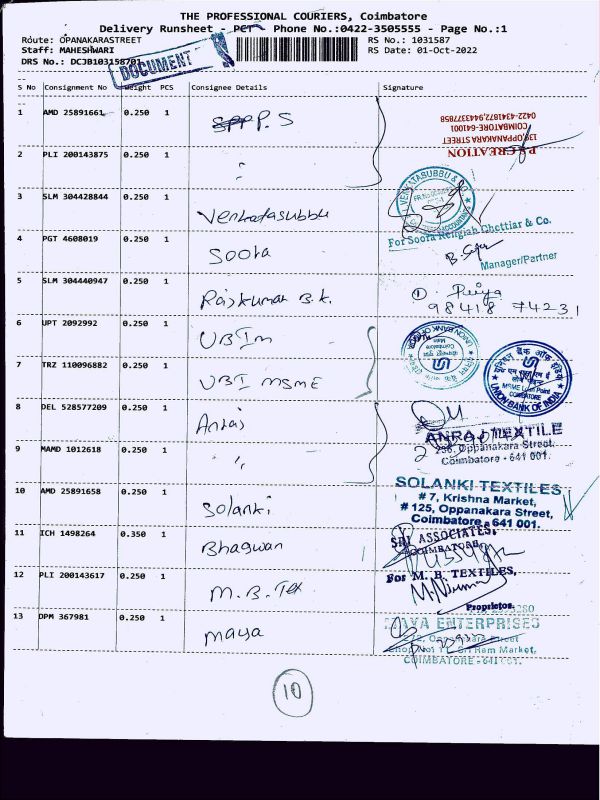 THE PROFESSIONAL COURIERS, Coimbatore
Delivery Runsheet - PCT - Phone No.:0422-3505555 - Page No.:1
Route: OPANAKARASTREET RS No.: 1031587
Staff: MAHESHWARI RS Date: 01-Oct-2022
DRS No.: DCJB103158701
DOCUMENT
S No Consignment No Weight PCS Consignee Details Signature
1 AMD 25891661 0.250 1 P.S
P.S CREATION
139, OPPANAKARA STREET
COIMBATORE-641001
0422-4341872, 9443377858
2 PLI 200143875 0.250 1 "
3 SLM 304428844 0.250 1 Venkatasubbu
VENKATASUBBU & CO.
4 PGT 4608019 0.250 1 Soora
For Soora Rengiah Chettiar & Co.
Manager/Partner
5 SLM 304440947 0.250 1 Rajkumar B.K. ① Priya
98418 74231
6 UPT 2092992 0.250 1 UBI m
UNION BANK OF INDIA
7 TRZ 110096882 0.250 1 UBI MSME
यूनियन बैंक ऑफ इंडिया
COIMBATORE
UNION BANK OF INDIA
8 DEL 528577209 0.250 1 Anraj
ANRAJ TEXTILE
256, Oppanakara Street,
Coimbatore - 641 001.
9 MAMD 1012618 0.250 1 "
10 AMD 25891658 0.250 1 Solanki
SOLANKI TEXTILES
# 7, Krishna Market,
# 125, Oppanakara Street,
Coimbatore - 641 001.
11 ICH 1498264 0.350 1 Bhagwan
SRI ASSOCIATES,
COIMBATORE
12 PLI 200143617 0.250 1 M.B. Tex
For M. B. TEXTILES,
Proprietor.
13 DPM 367981 0.250 1 maya
MAYA ENTERPRISES
Oppanakara Street
Shop No1 Sri Ram Market,
COIMBATORE - 641 001.
10